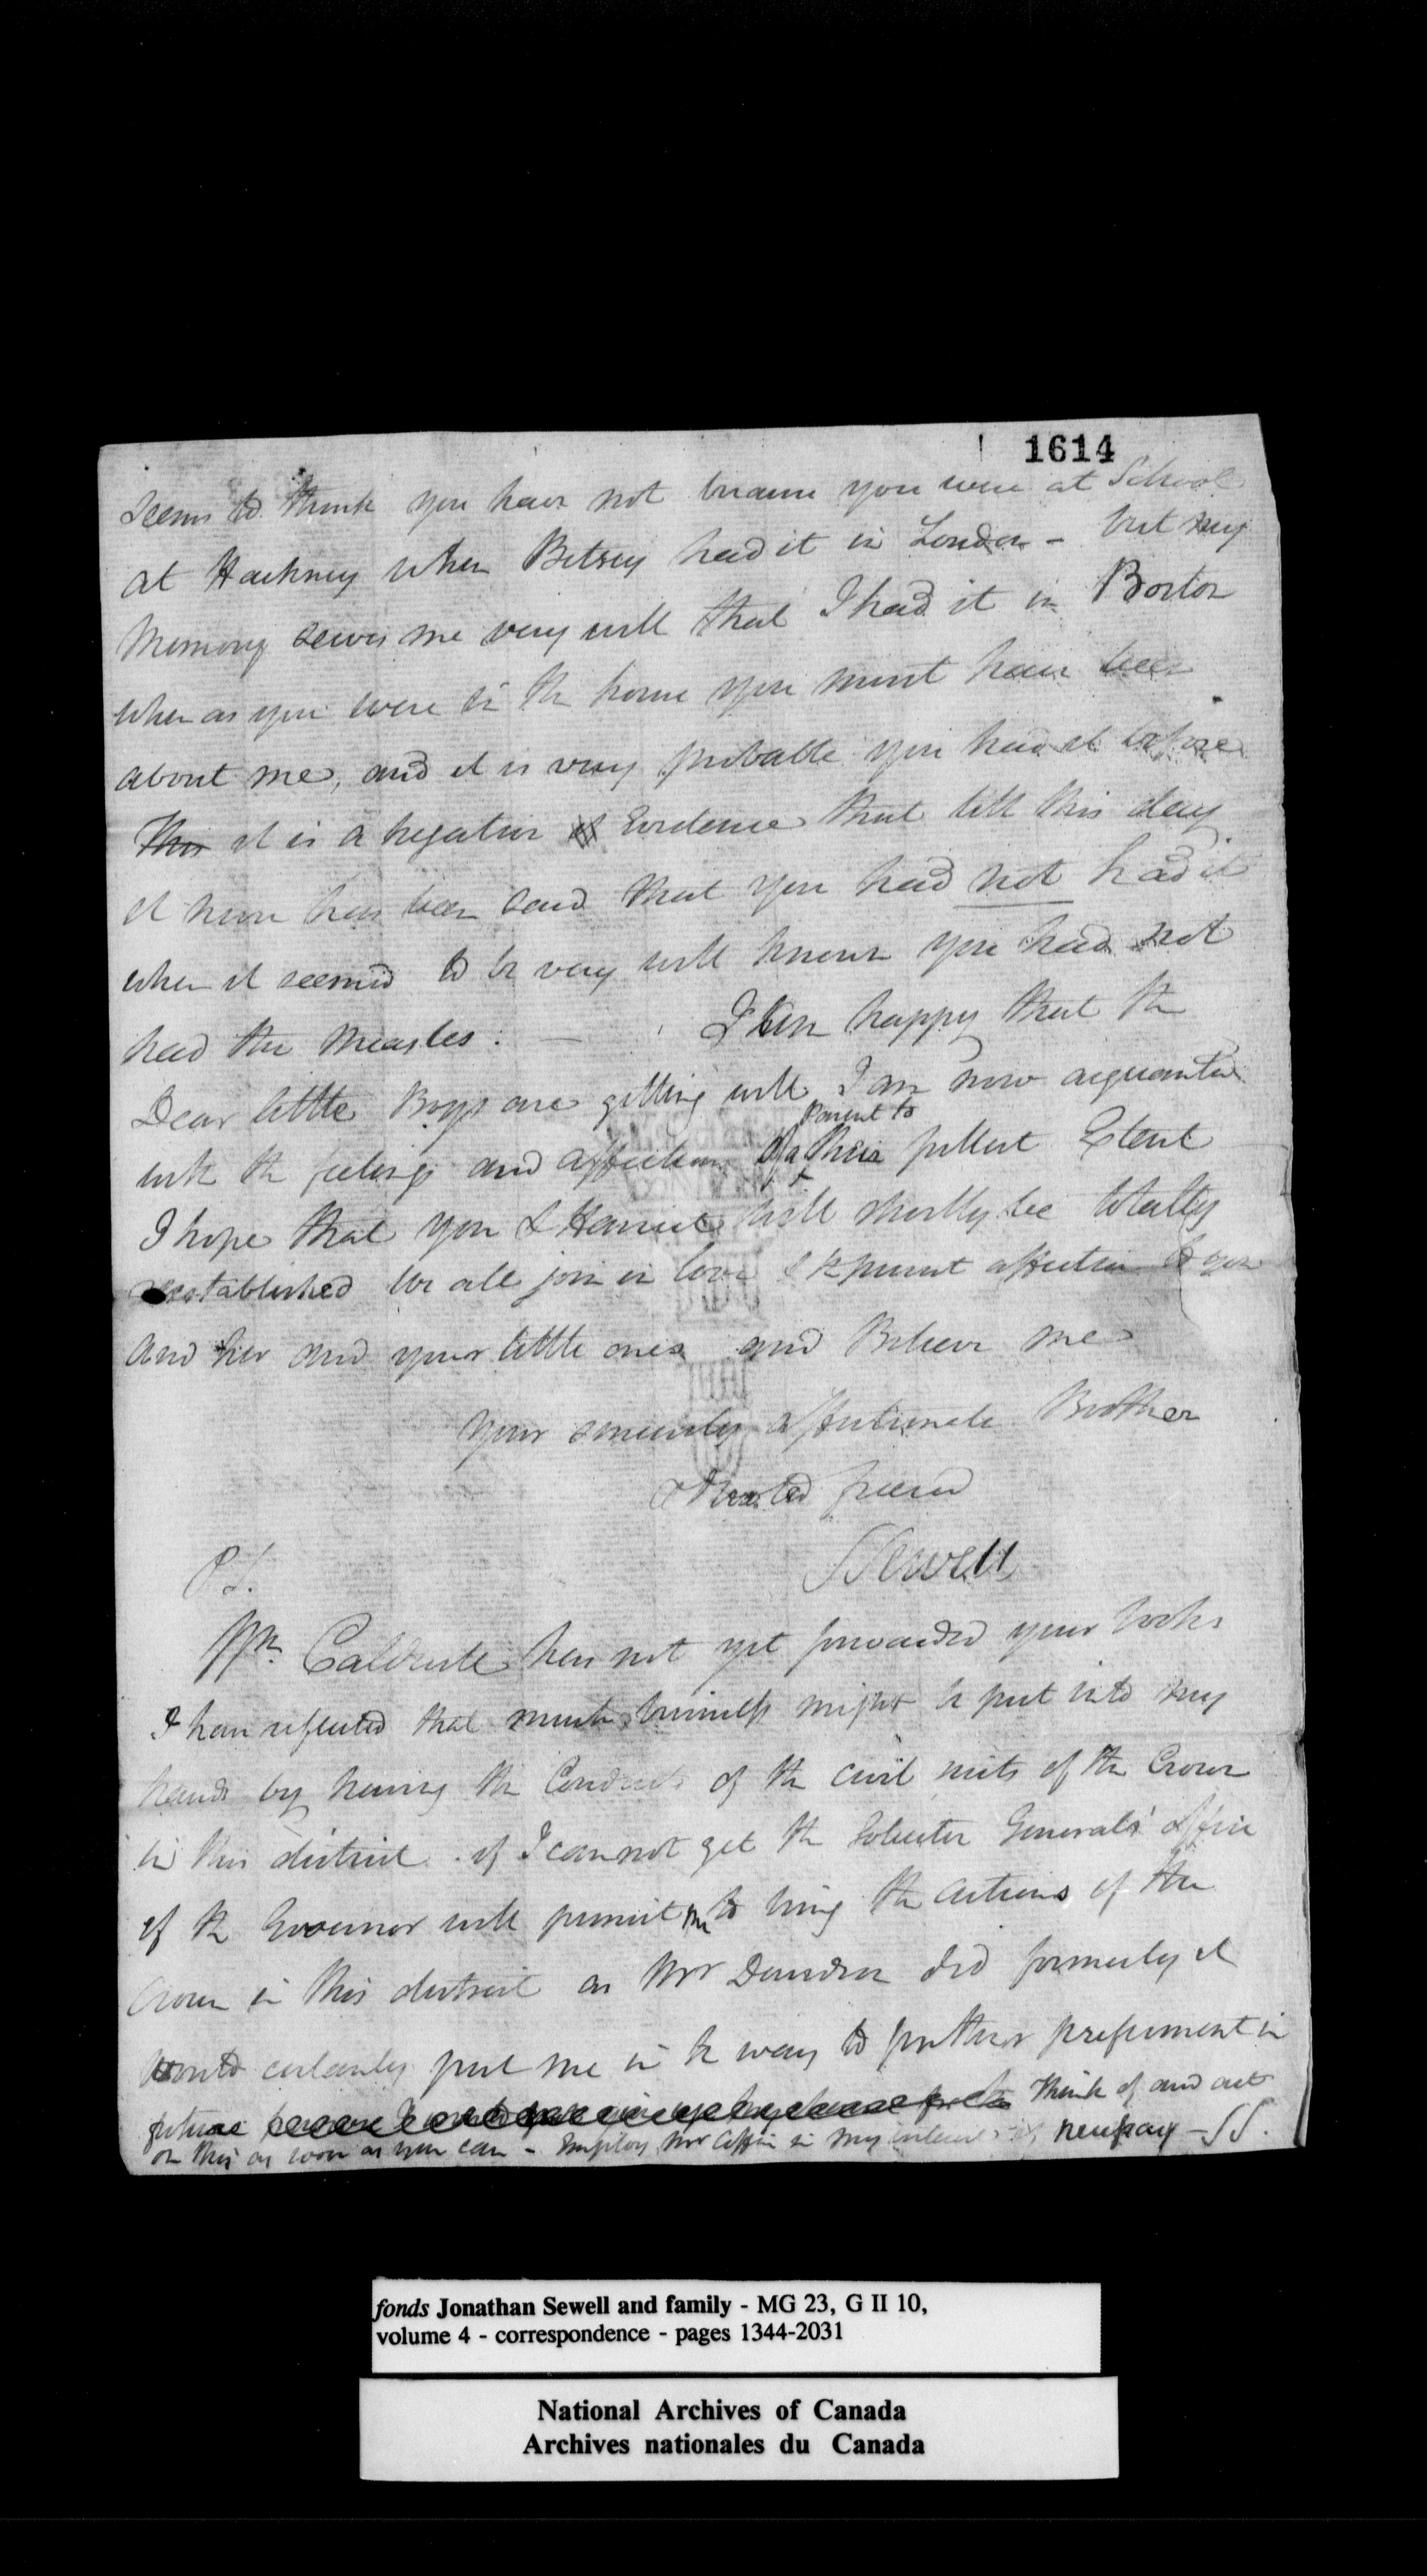 1614
Seems to think you have not because you were at School
at Hackney when Betsey had it in London - but my
Memory serves me very well that I had it in Boston
when as you were in the house you must have been
about me, and it is very probable you had it before
This it is a negative Evidence that till this day
it never has been said that you had not had it
when it seemed to be very well known you had not
had the Measles: — I am happy that the
Dear little Boys are getting well I am now acquainted
with the feelings and affections of a Parent to their fullest Extent
I hope that you & Harriet will shortly be totally
reestablished We all join in love & sincerest affection to you
and her and your little ones and Believe me
Your sincerely affectionate Brother
& devoted friend
SSewell
P.S.
Mr. Caldwell has not yet forwarded your books
I have reflected that much business might be put into my
hands by having the Conduct of the civil suits of the Crown
in this district. if I cannot get the Soliciter Generals office
if the Governor will permit me to bring the actions of the
Crown in this district as Mr Davidson did formerly it
would certainly put me in the way to further preferment in
future Think of and act
on this as soon as you can - Employ Mr Coffin in my interest if necessary - SS.
fonds Jonathan Sewell and family - MG 23, G II 10,
volume 4 - correspondence - pages 1344-2031
National Archives of Canada
Archives nationales du Canada